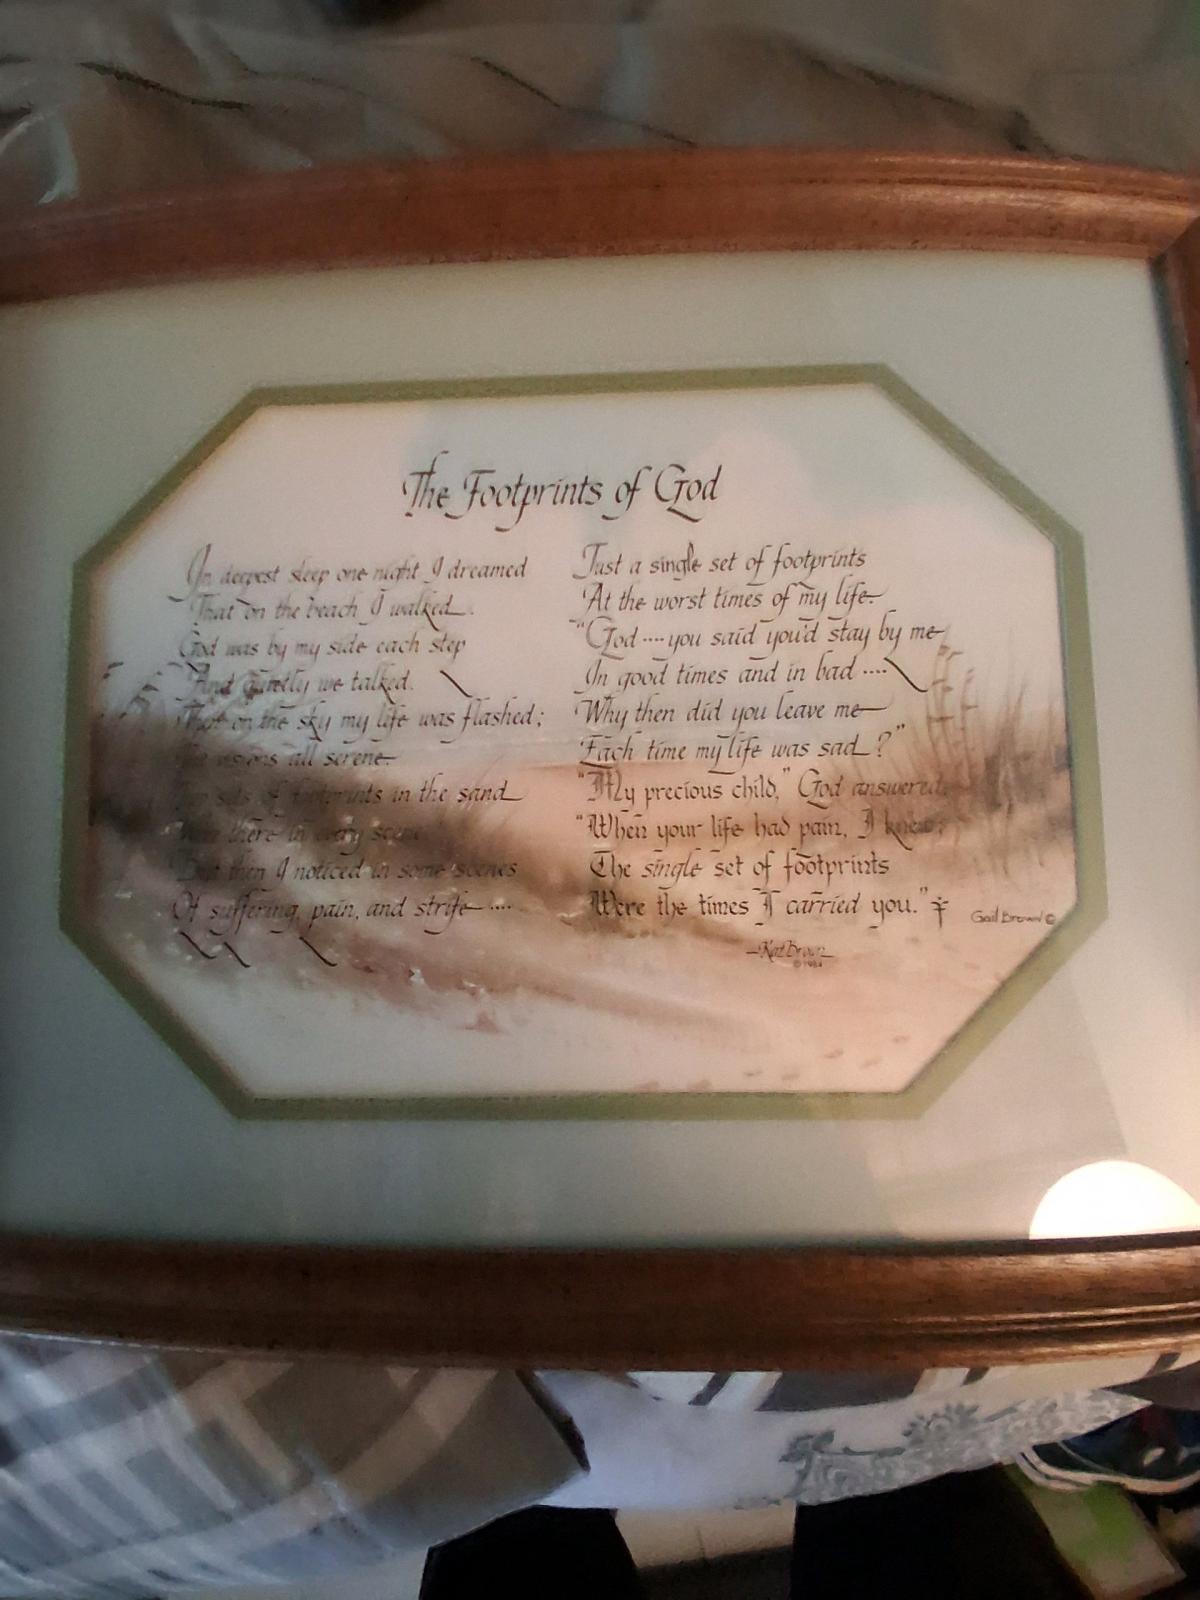 The Footprints of God
In deepest sleep one night I dreamed
That on the beach I walked.
God was by my side each step
And quietly we talked.
That on the sky my life was flashed;
The visions all serene.
Two sets of footprints in the sand
Were there in every scene.
But then I noticed in some scenes
Of suffering, pain, and strife ....
Just a single set of footprints
At the worst times of my life.
"God .... you said you'd stay by me
In good times and in bad ....
Why then did you leave me
Each time my life was sad?"
"My precious child," God answered,
"When your life had pain, I knew;
The single set of footprints
Were the times I carried you."
Gail Brown ©
—Kat Brown
© 1984